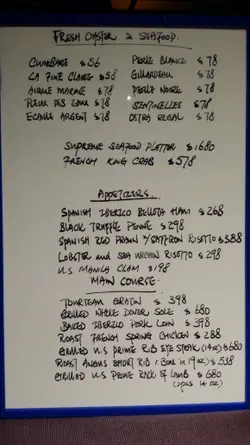 FRESH OYSTER & SEAFOOD.
CUMBRAE $56
LA FINE CLAIRE $58
AIGUE MARINE $78
FLEUR DES EAUX $78
ECAILLE ARGENT $78
PERLE BLANCE $78
GILLARDEAU $78
PERLE NOIRE $78
SENTINELLES $78
OSTRA REGAL $78
SUPREME SEAFOOD PLATTER $1680
FRENCH KING CRAB $578
APPETIZERS.
SPANISH IBERICO BELLOTA HAM $268
BLACK TRUFFLE PENNE $298
SPANISH RED PRAWN W/SAFFRON RISOTTO $388
LOBSTER AND SEA URCHIN RISOTTO $298
U.S MANILA CLAM $198
MAIN COURSE.
TOURTEAU GRATIN $398
GRILLED WHOLE DOVER SOLE $680
BAKED IBERICO PORK LOIN $398
ROAST FRENCH SPRING CHICKEN $288
GRILLED U.S PRIME RIB EYE STEAK (14oz) $680
ROAST ANGUS SHORT RIB 1 BONE IN 19oz $538
GRILLED U.S PRIME RACK OF LAMB $680
(2pcs 14oz)